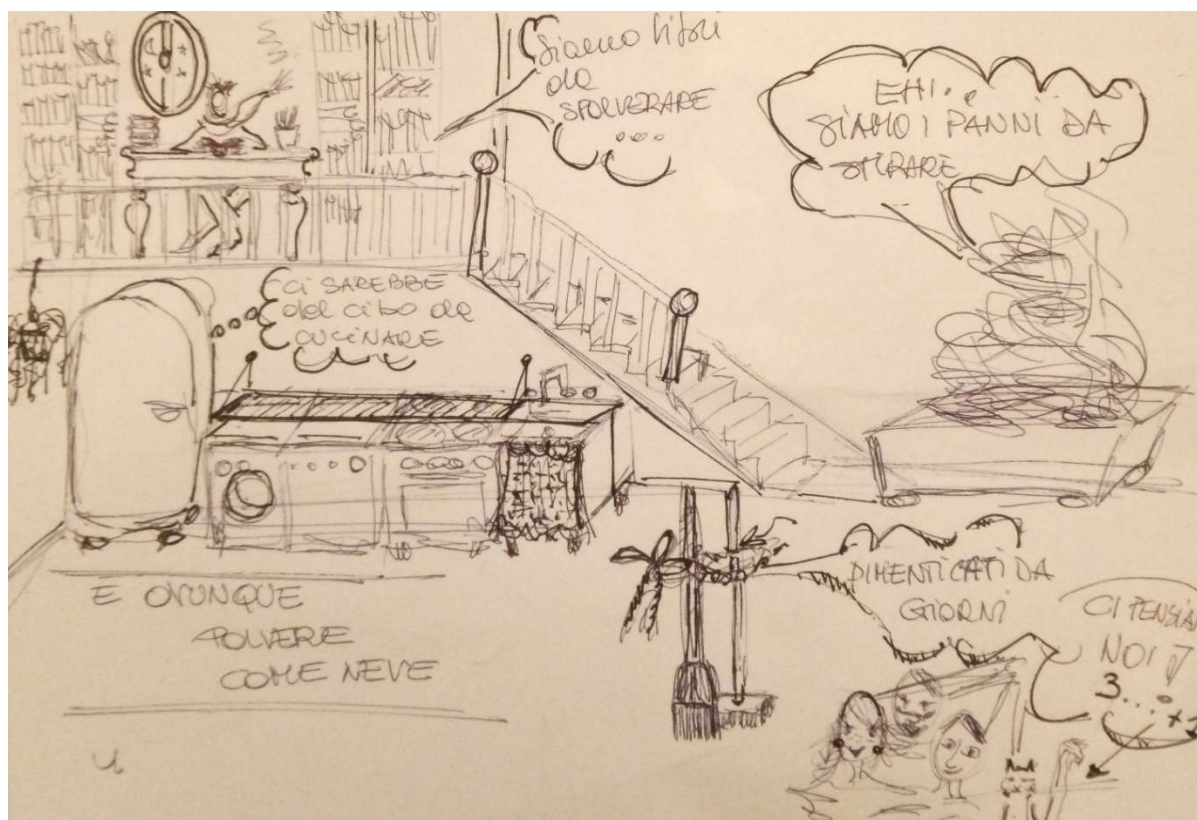 Siamo libri
da
SPOLVERARE
...
EHI..
SIAMO I PANNI DA
STIRARE
Ci SAREBBE
del cibo da
CUCINARE
E OVUNQUE
POLVERE
COME NEVE
DIMENTICATI DA
GIORNI
CI PENSIA
NOI
3...
+1